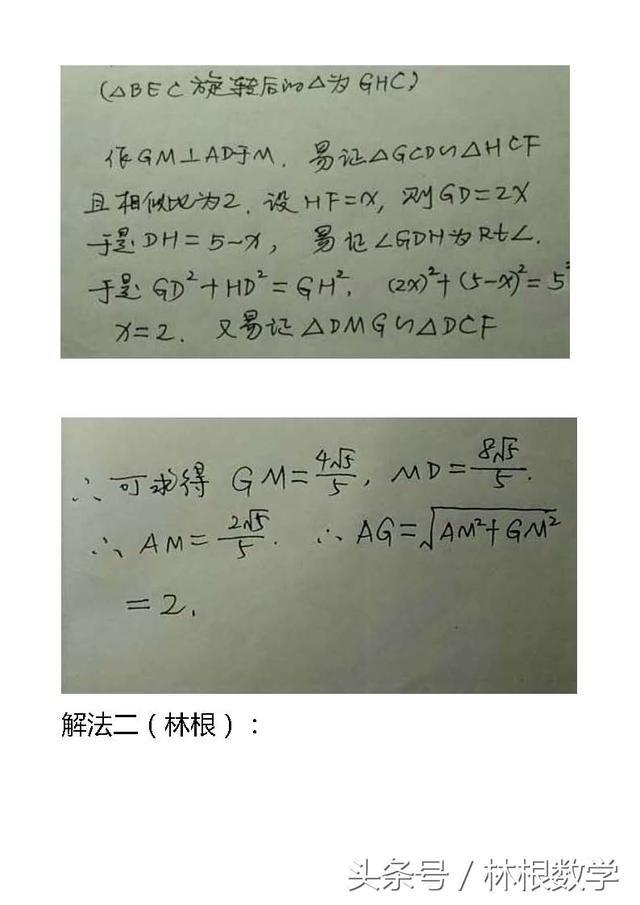 (△BEC旋转后的△为GHC)
作GM⊥AD于M. 易证△GCD∽△HCF
且相似比为2. 设HF=x, 则GD=2x
于是DH=5-x, 易证∠GDH为Rt∠.
于是GD²+HD²=GH². (2x)²+(5-x)²=5²
x=2. 又易证△DMG∽△DCF
∴可求得 GM=4√5/5, MD=8√5/5.
∴AM=2√5/5. ∴AG=√(AM²+GM²)
=2.
解法二（林根）：
头条号 / 林根数学